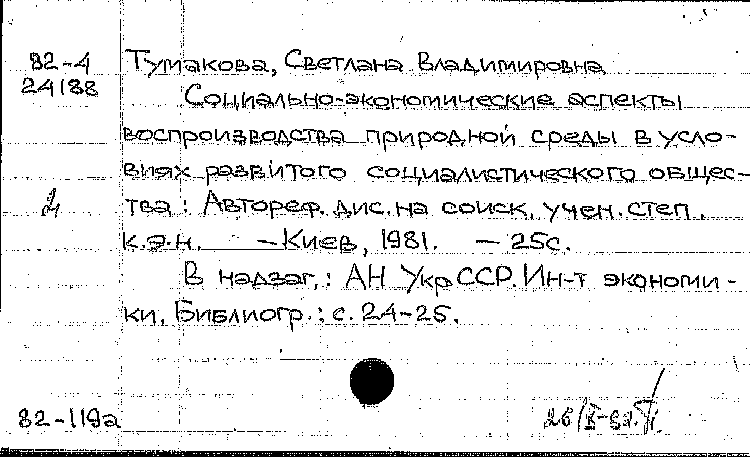 82-4
24188
Тумакова, Светлана Владимировна
Социально-экономические аспекты
воспроизводства природной среды в усло-
виях развитого социалистического общес-
тва: Автореф. дис. на соиск. учен. степ.
к.э.н. — Киев, 1981. — 25с.
В надзаг.: АН УкрССР. Ин-т экономи-
ки. Библиогр.: с. 24-25.
82-119а